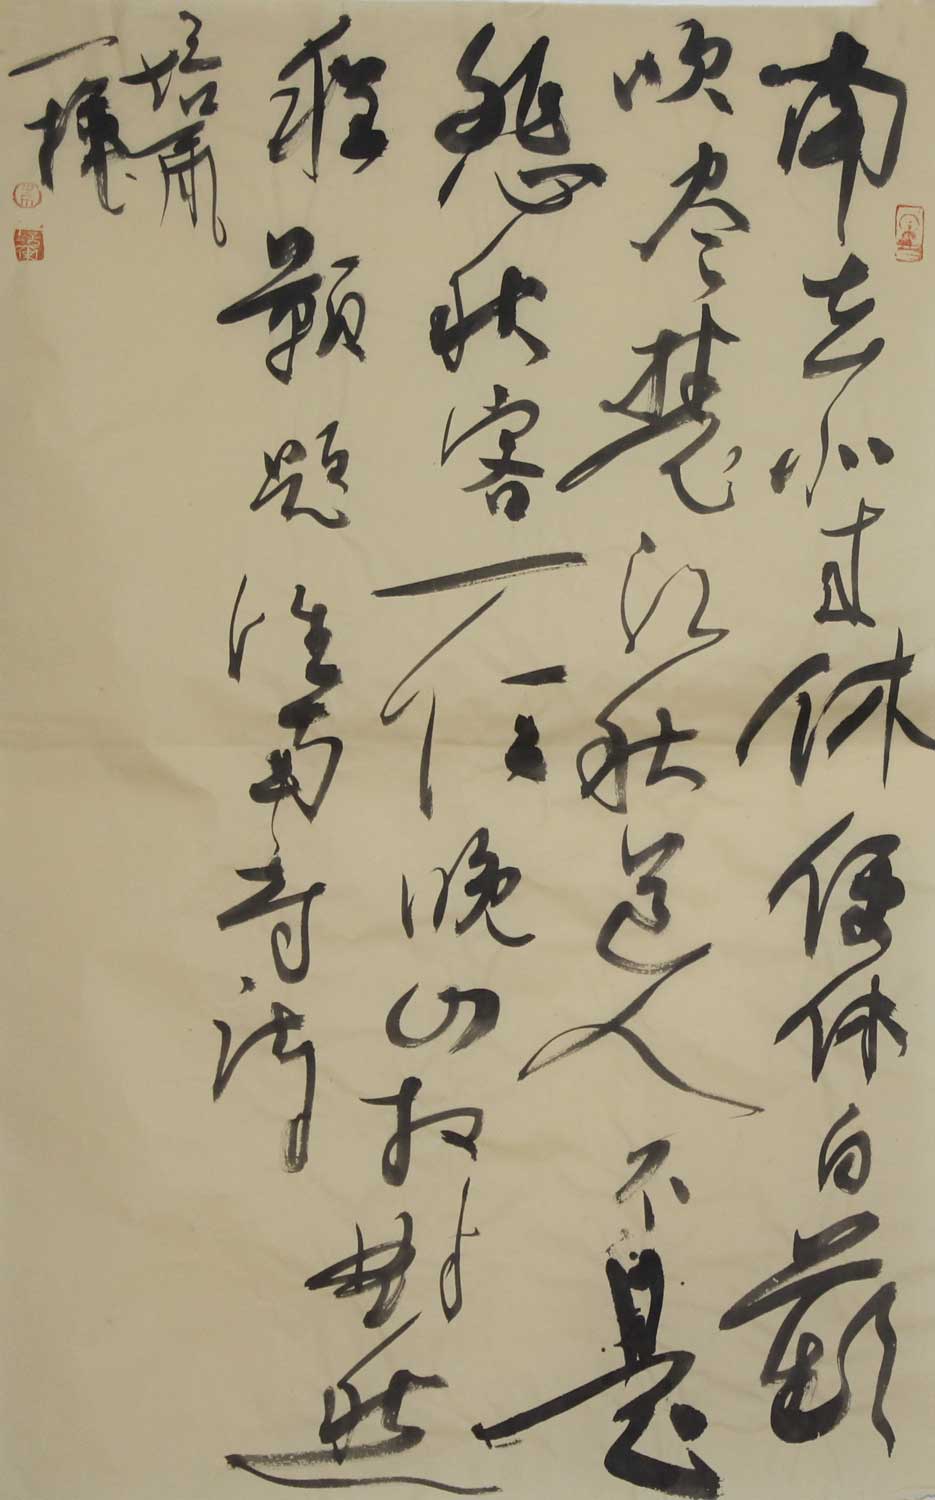 南去北来休便休白蘋
吹尽楚江秋道人不是
悲秋客一任晚山相对愁
程颢题淮南寺诗
一挥